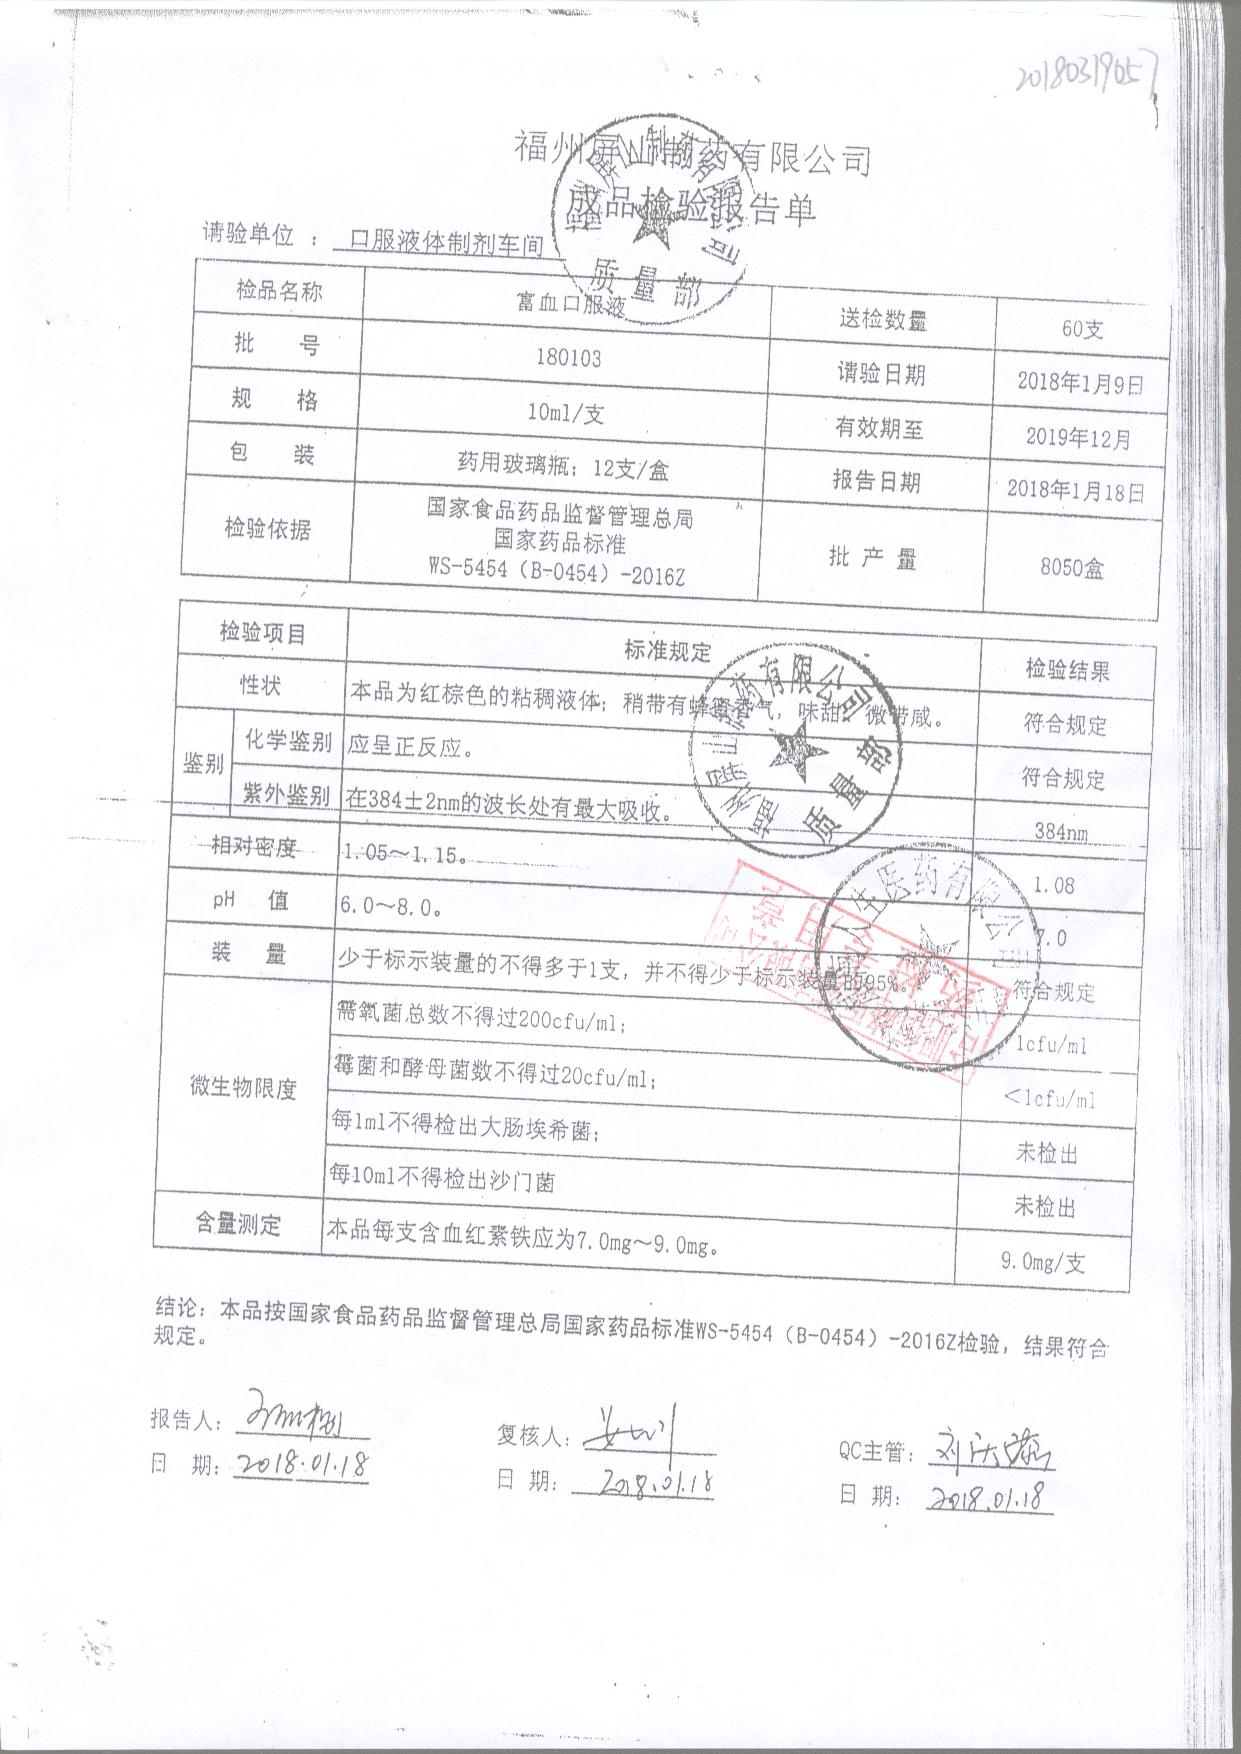 2018031905
福州屏山制药有限公司
成品检验报告单
请验单位 ： 口服液体制剂车间
检品名称 富血口服液 送检数量 60支
批 号 180103 请验日期 2018年1月9日
规 格 10ml/支 有效期至 2019年12月
包 装 药用玻璃瓶；12支/盒 报告日期 2018年1月18日
检验依据 国家食品药品监督管理总局
国家药品标准
WS-5454（B-0454）-2016Z 批 产 量 8050盒
检验项目 标准规定 检验结果
性状 本品为红棕色的粘稠液体；稍带有蜂蜜香气，味甜、微带咸。 符合规定
鉴别 化学鉴别 应呈正反应。 符合规定
紫外鉴别 在384±2nm的波长处有最大吸收。 384nm
相对密度 1.05～1.15。 1.08
pH 值 6.0～8.0。 7.0
装 量 少于标示装量的不得多于1支，并不得少于标示装量的95%。 符合规定
微生物限度 需氧菌总数不得过200cfu/ml； 1cfu/ml
霉菌和酵母菌数不得过20cfu/ml； ＜1cfu/ml
每1ml不得检出大肠埃希菌； 未检出
每10ml不得检出沙门菌 未检出
含量测定 本品每支含血红素铁应为7.0mg～9.0mg。 9.0mg/支
结论：本品按国家食品药品监督管理总局国家药品标准WS-5454（B-0454）-2016Z检验，结果符合
规定。
报告人： 复核人： QC主管：
日 期：2018.01.18 日 期：2018.01.18 日 期：2018.01.18
福州屏山制药有限公司
质量部
福州屏山制药有限公司
质量部
医药有限公司